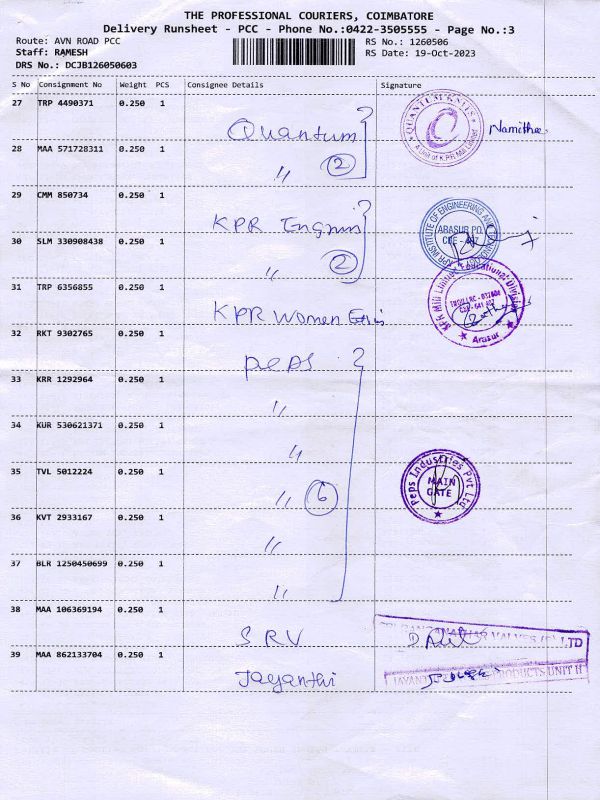 THE PROFESSIONAL COURIERS, COIMBATORE
Delivery Runsheet - PCC - Phone No.:0422-3505555 - Page No.:3
Route: AVN ROAD PCC
RS No.: 1260506
Staff: RAMESH
RS Date: 19-Oct-2023
DRS No.: DCJB126050603
S No Consignment No Weight PCS Consignee Details Signature
27 TRP 4490371 0.250 1 Quantum
QUANTUM KNITS
A Unit of K.P.R. Mill Limited
Namitha
28 MAA 571728311 0.250 1 〃 2
29 CMM 850734 0.250 1 KPR
KPR INSTITUTE OF ENGINEERING AND
ARASUR PO.
30 SLM 330908438 0.250 1 〃 2
31 TRP 6356855 0.250 1 KPR Women
KPR Mill Limited Educational Division
Arasur
32 RKT 9302765 0.250 1 peps
33 KRR 1292964 0.250 1 〃
34 KUR 530621371 0.250 1 〃
35 TVL 5012224 0.250 1 〃 6
Peps Industries Pvt Ltd
MAIN
GATE
36 KVT 2933167 0.250 1 〃
37 BLR 1250450699 0.250 1 〃
38 MAA 106369194 0.250 1 SRV
VALVES (P) LTD
39 MAA 862133704 0.250 1 Jayanthi
PRODUCTS UNIT II